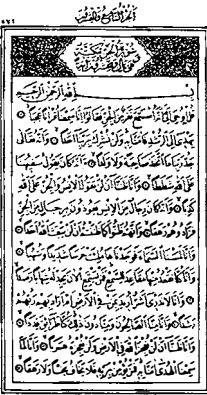 الجزء التاسع والعشرون
بسم الله الرحمن الرحيم
قُلْ أُوحِيَ إِلَيَّ أَنَّهُ اسْتَمَعَ نَفَرٌ مِنَ الْجِنِّ فَقَالُوا إِنَّا سَمِعْنَا قُرْآنًا عَجَبًا
يَهْدِي إِلَى الرُّشْدِ فَآمَنَّا بِهِ وَلَنْ نُشْرِكَ بِرَبِّنَا أَحَدًا وَأَنَّهُ تَعَالَى
جَدُّ رَبِّنَا مَا اتَّخَذَ صَاحِبَةً وَلَا وَلَدًا وَأَنَّهُ كَانَ يَقُولُ سَفِيهُنَا
عَلَى اللَّهِ شَطَطًا وَأَنَّا ظَنَنَّا أَنْ لَنْ تَقُولَ الْإِنْسُ وَالْجِنُّ عَلَى اللَّهِ
كَذِبًا وَأَنَّهُ كَانَ رِجَالٌ مِنَ الْإِنْسِ يَعُوذُونَ بِرِجَالٍ مِنَ الْجِنِّ
فَزَادُوهُمْ رَهَقًا وَأَنَّهُمْ ظَنُّوا كَمَا ظَنَنْتُمْ أَنْ لَنْ يَبْعَثَ اللَّهُ أَحَدًا
وَأَنَّا لَمَسْنَا السَّمَاءَ فَوَجَدْنَاهَا مُلِئَتْ حَرَسًا شَدِيدًا وَشُهُبًا
وَأَنَّا كُنَّا نَقْعُدُ مِنْهَا مَقَاعِدَ لِلسَّمْعِ فَمَنْ يَسْتَمِعِ الْآنَ يَجِدْ لَهُ شِهَابًا رَصَدًا
وَأَنَّا لَا نَدْرِي أَشَرٌّ أُرِيدَ بِمَنْ فِي الْأَرْضِ أَمْ أَرَادَ بِهِمْ رَبُّهُمْ
رَشَدًا وَأَنَّا مِنَّا الصَّالِحُونَ وَمِنَّا دُونَ ذَلِكَ كُنَّا طَرَائِقَ قِدَدًا
وَأَنَّا ظَنَنَّا أَنْ لَنْ نُعْجِزَ اللَّهَ فِي الْأَرْضِ وَلَنْ نُعْجِزَهُ هَرَبًا وَأَنَّا لَمَّا
سَمِعْنَا الْهُدَى آمَنَّا بِهِ فَمَنْ يُؤْمِنْ بِرَبِّهِ فَلَا يَخَافُ بَخْسًا وَلَا رَهَقًا